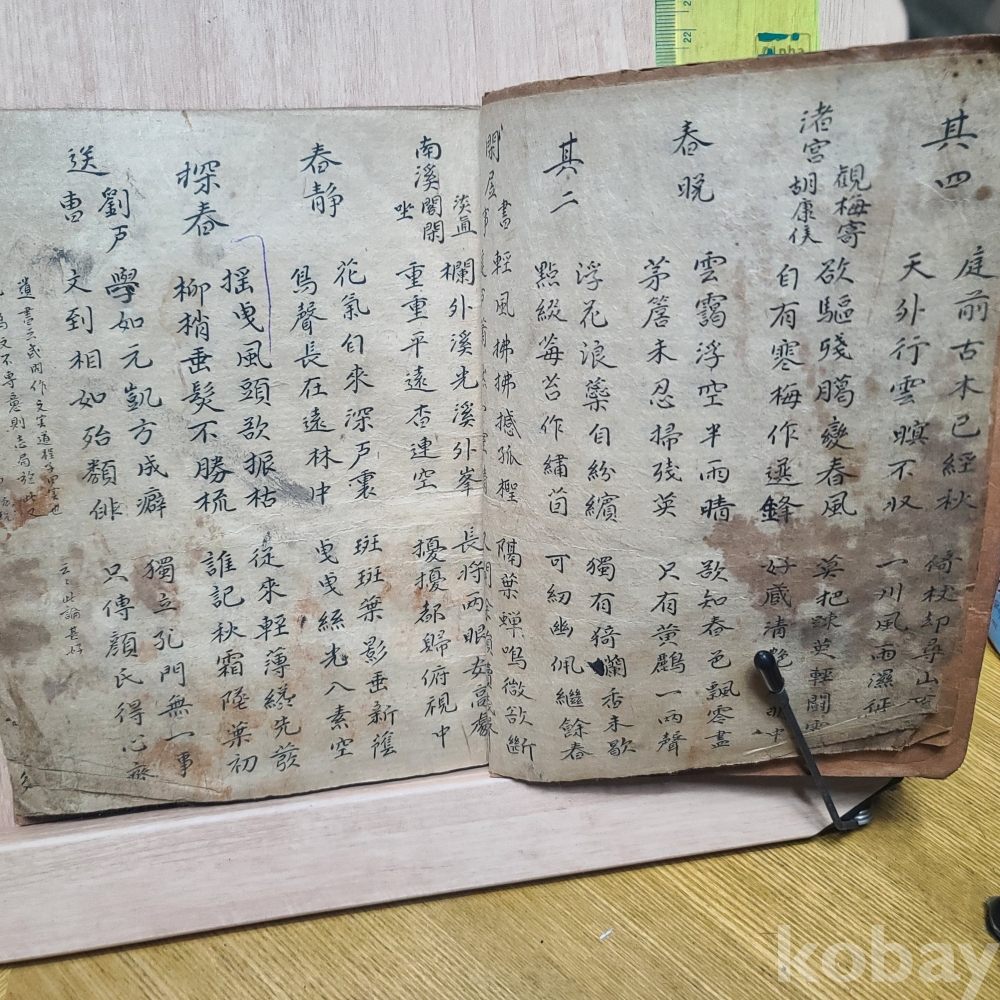 其四
庭前古木已經秋
倚杖却尋山
天外行雲暝不収
一川風雨濕征
渚宮觀梅寄胡康侯
欲驅殘臈變春風
莫把疎英輕鬪雪
自有寒梅作選鋒
好藏清艶
春晩
雲靄浮空半雨晴
欲知春色飄零盡
茅簷未忍掃残英
只有黄鸝一兩聲
其二
浮花浪蘂自紛繽
獨有猗蘭香未歇
點綴莓苔作繡茵
可紉幽佩繼餘春
閑居
書
輕風拂拂撼孤檉
隔葉蟬鳴微欲斷
南溪閣閑坐
淡眞
欄外溪光溪外峯
長將兩眼
重重平遠杳連空
擾擾都歸俯視中
春静
花氣自來深戶裏
斑斑葉影垂新䕃
鳥聲長在遠林中
曳曳絲光入素空
探春
揺曳風頭欲振枯
從來輕薄纔先發
柳梢垂髮不勝梳
誰記秋霜墜葉初
送劉戶曹
學如元凱方成癖
獨立孔門無一事
文到相如殆類俳
只傳顔氏得心齋
遺書云或問作文害道程子曰害也
爲文不專意則
志局於此又
云云此論甚好
kobay
22